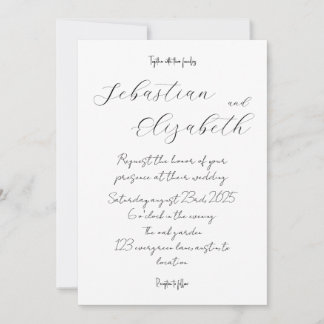 Together with their families
Sebastian
and
Elizabeth
Request the honor of your
presence at their wedding
Saturday august 23rd, 2025
6 o'clock in the evening
The oak garden
123 evergreen lane, austin to
location
Reception to follow